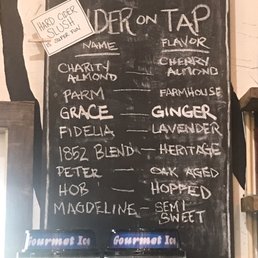 HARD CIDER
SLUSH
CIDER ON TAP
NAME FLAVOR
CHARITY CHERRY
ALMOND ALMOND
PARM — FARMHOUSE
GRACE — GINGER
FIDELIA — LAVENDER
1852 BLEND — HERITAGE
PETER — OAK AGED
HOB — HOPPED
MAGDELINE — SEMI
SWEET
Gourmet Ice Gourmet Ice